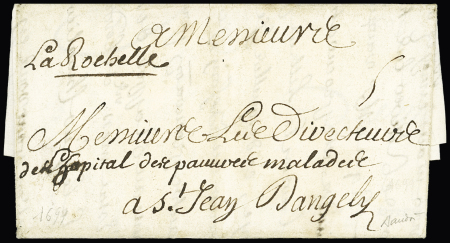 a Messieurs
La Rochelle
5
Messieurs Les Directeurs
de l'hopital des pauvres malades
a St Jean Dangely
1699